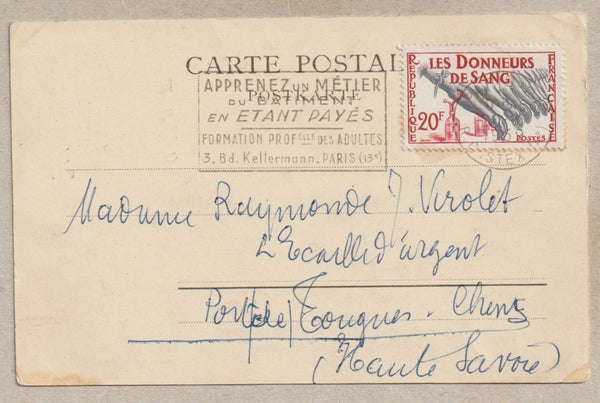 CARTE POSTAL
POSTKARTE
APPRENEZ UN MÉTIER
DU BÂTIMENT
EN ETANT PAYÉS
FORMATION PROFelle DES ADULTES
3, Bd. Kellermann. PARIS (13e)
RÉPUBLIQUE
LES DONNEURS
DE SANG
FRANÇAISE
20F
POSTES
Madame Raymonde J. Virolet
L'Ecaille d'argent
Port de Tougues - Chens
(Haute Savoie)